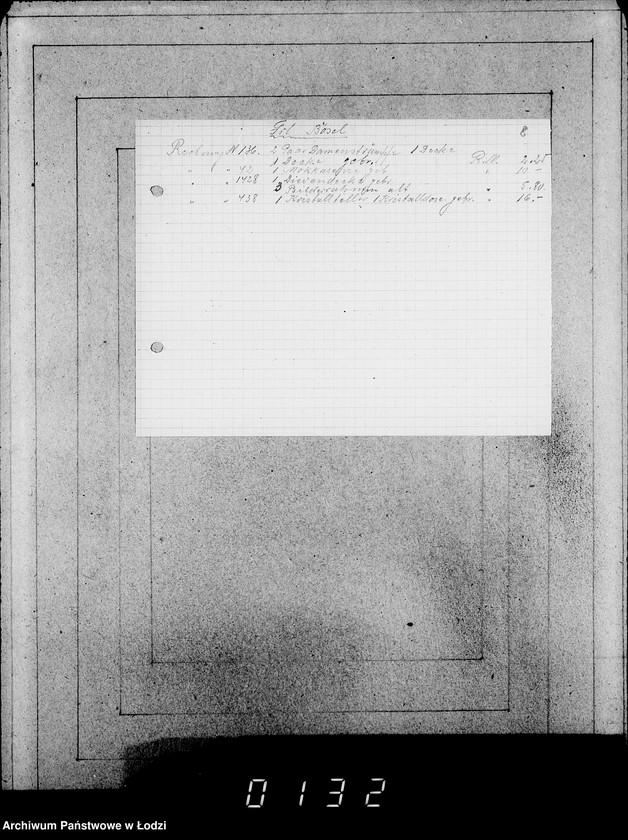 Frl. Bösel
8
Rechnung N 136. 2 Paar Damenstrümpfe 1 Decke
1 Decke gebr. R.M. 2.25
" " 42 1 Mokka gebr. " 10.-
" " 1428 1 Diwandecke gebr.
3 Bilderrahmen alt " 5.80
" " 438 1 Kristallteller 1 Kristalldose gebr. " 16.-
0132
Archiwum Państwowe w Łodzi